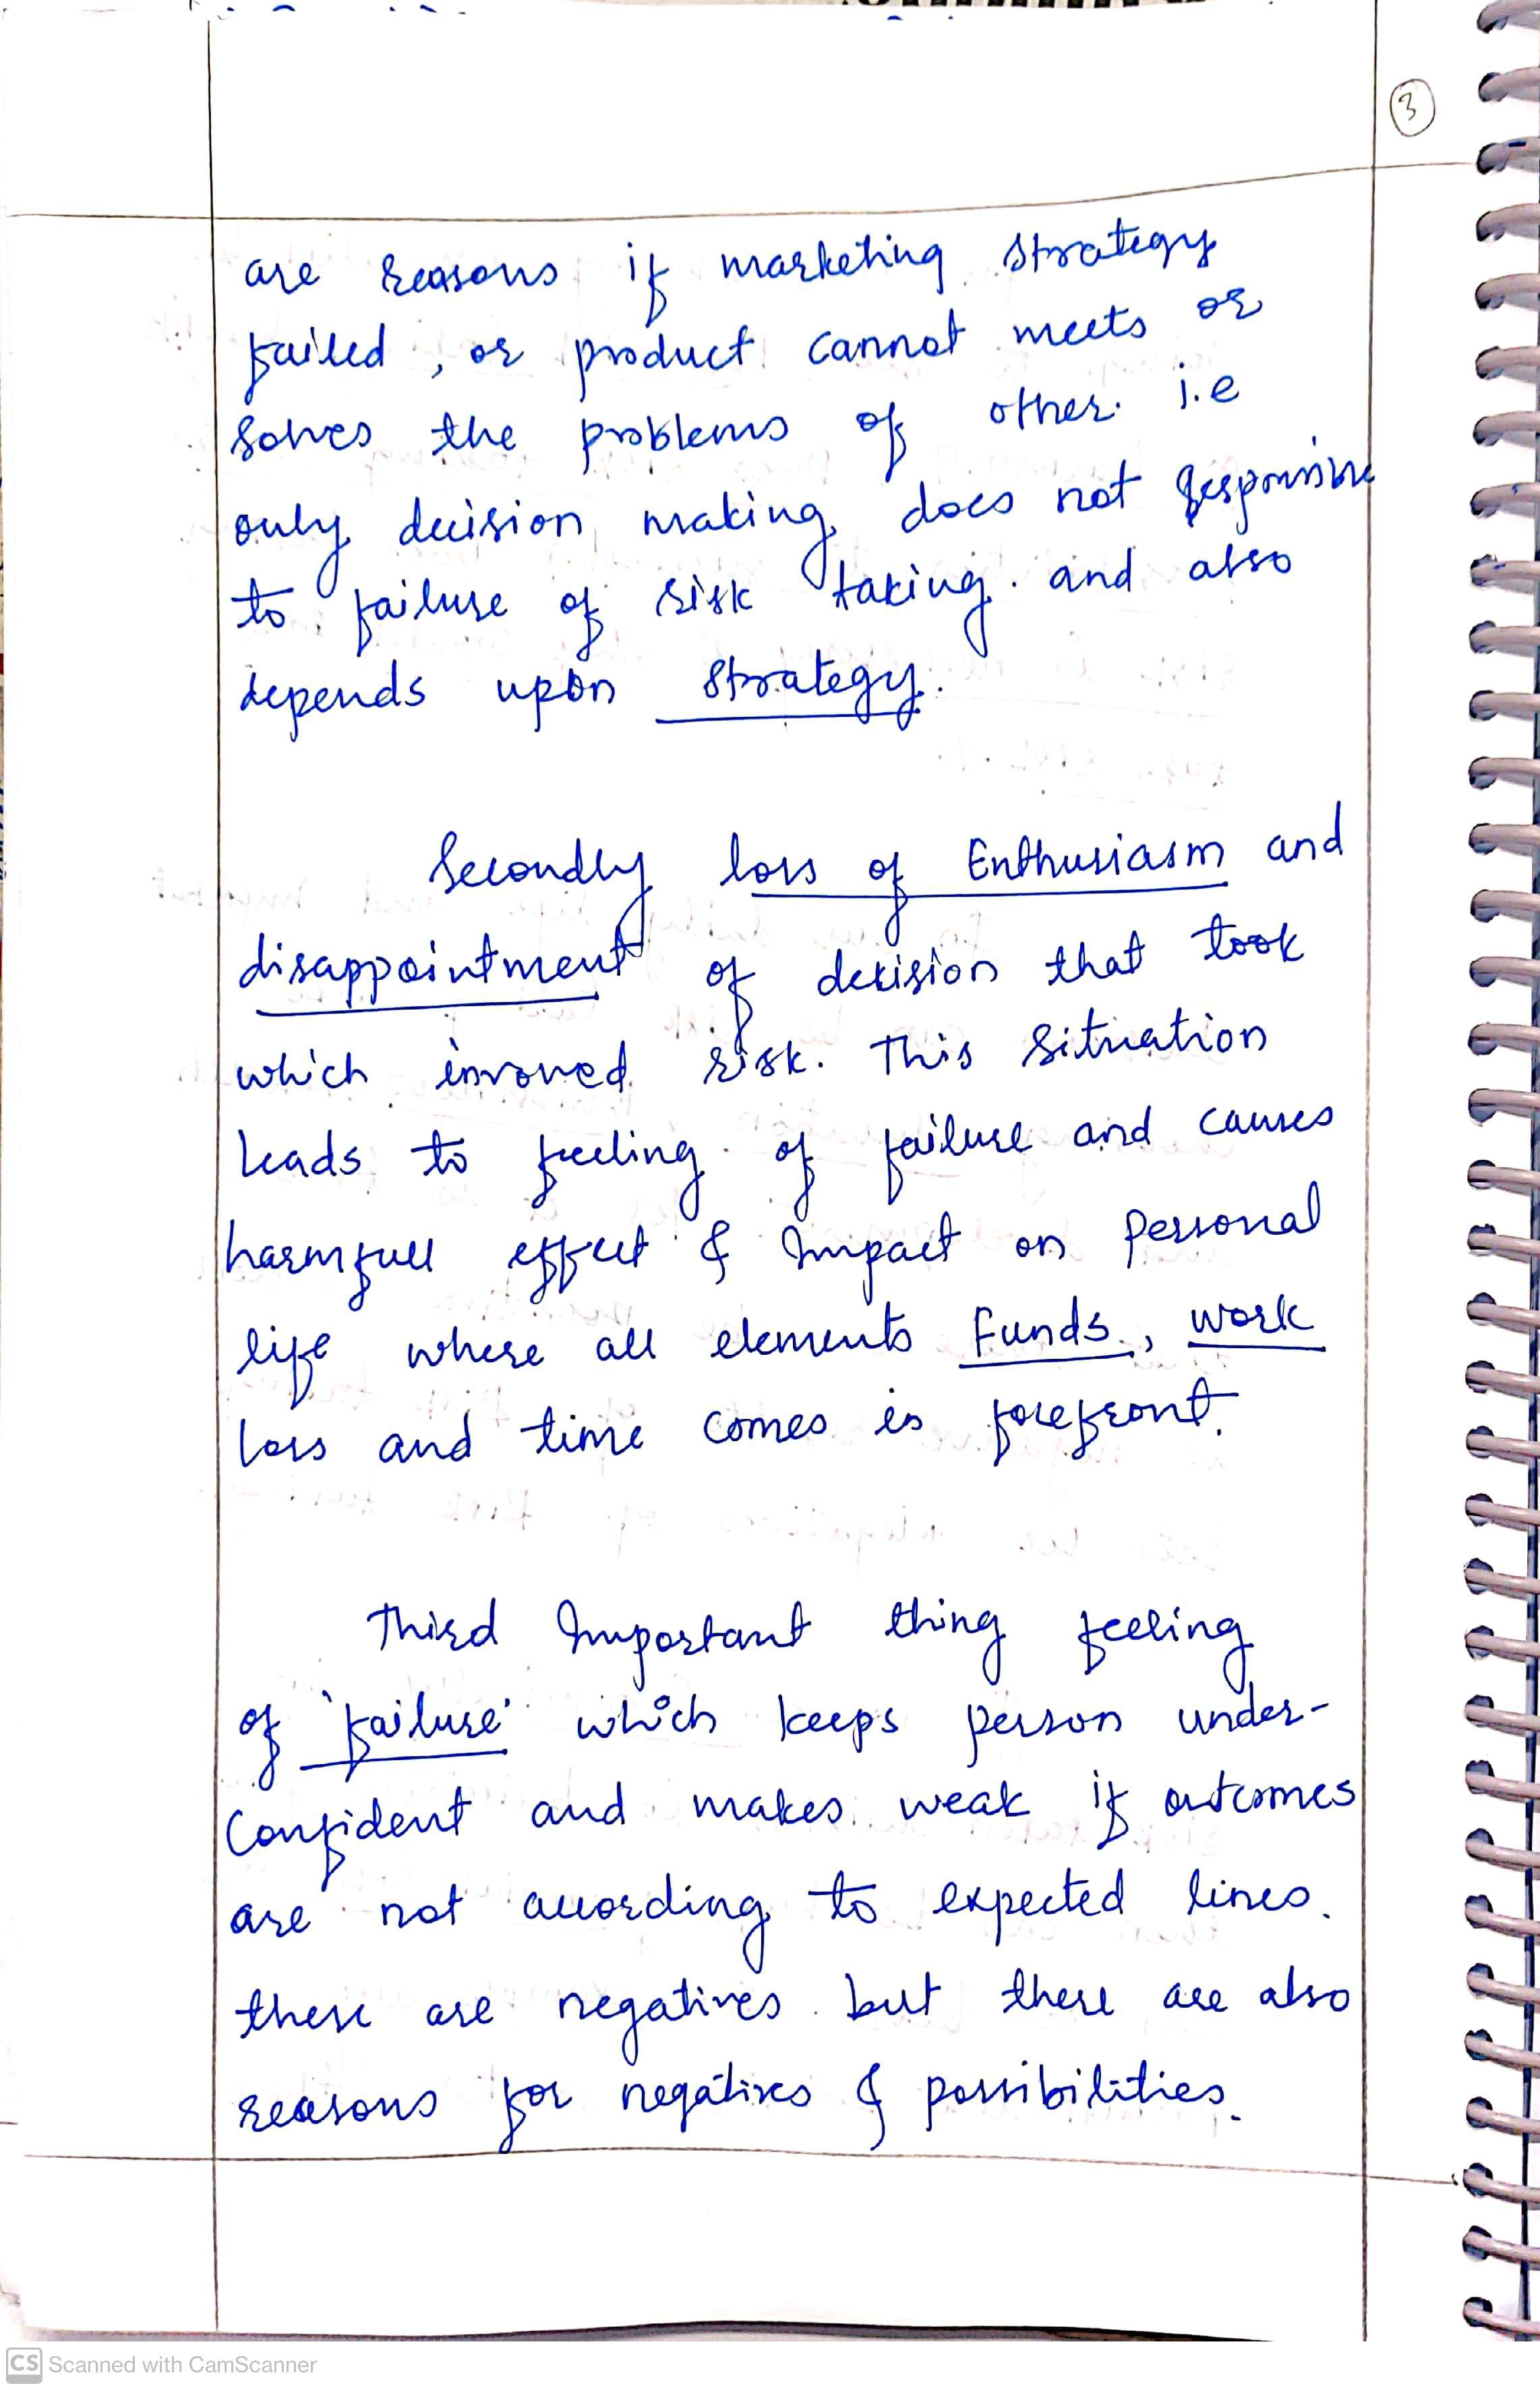 3
are reasons if marketing strategy
failed, or product cannot meets or
solves the problems of other. i.e
only decision making does not responsible
to failure of risk taking. and also
depends upon strategy.
Secondly loss of Enthusiasm and
disappointment of decision that took
which invoved risk. This situation
leads to feeling of failure and causes
harmfull effect & Impact on Personal
life where all elements Funds, work
loss and time comes is forefront.
Third Important thing feeling
of 'failure' which keeps person under-
Confident and makes weak if outcomes
are not according to expected lines.
these are negatives but there are also
reasons for negatives & possibilities.
CS Scanned with CamScanner